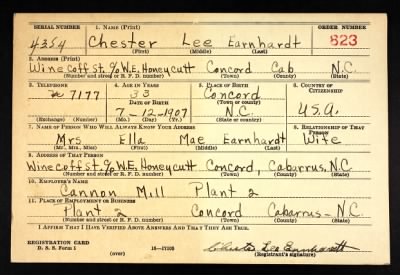 SERIAL NUMBER 1. NAME (Print) ORDER NUMBER
4354 Chester Lee Earnhardt 623
(First) (Middle) (Last)
2. ADDRESS (Print)
Winecoff St. % W.E. Honeycutt Concord Cab N.C.
(Number and street or R. F. D. number) (Town) (County) (State)
3. TELEPHONE 4. AGE IN YEARS 5. PLACE OF BIRTH 6. COUNTRY OF CITIZENSHIP
7177 33 Concord
DATE OF BIRTH (Town or county)
7-12-1907 N.C. U.S.A.
(Exchange) (Number) (Mo.) (Day) (Yr.) (State or country)
7. NAME OF PERSON WHO WILL ALWAYS KNOW YOUR ADDRESS 8. RELATIONSHIP OF THAT PERSON
Mrs Ella Mae Earnhardt Wife
(Mr., Mrs., Miss) (First) (Middle) (Last)
9. ADDRESS OF THAT PERSON
Winecoff St. % W.E. Honeycutt Concord, Cabarrus, N.C.
(Number and street or R. F. D. number) (Town) (County) (State)
10. EMPLOYER'S NAME
Cannon Mill Plant 2
11. PLACE OF EMPLOYMENT OR BUSINESS
Plant 2 Concord Cabarrus - N.C.
(Number and street or R. F. D. number) (Town) (County) (State)
I AFFIRM THAT I HAVE VERIFIED ABOVE ANSWERS AND THAT THEY ARE TRUE.
REGISTRATION CARD
D. S. S. Form 1 16-17105 Chester Lee Earnhardt
(Registrant's signature)